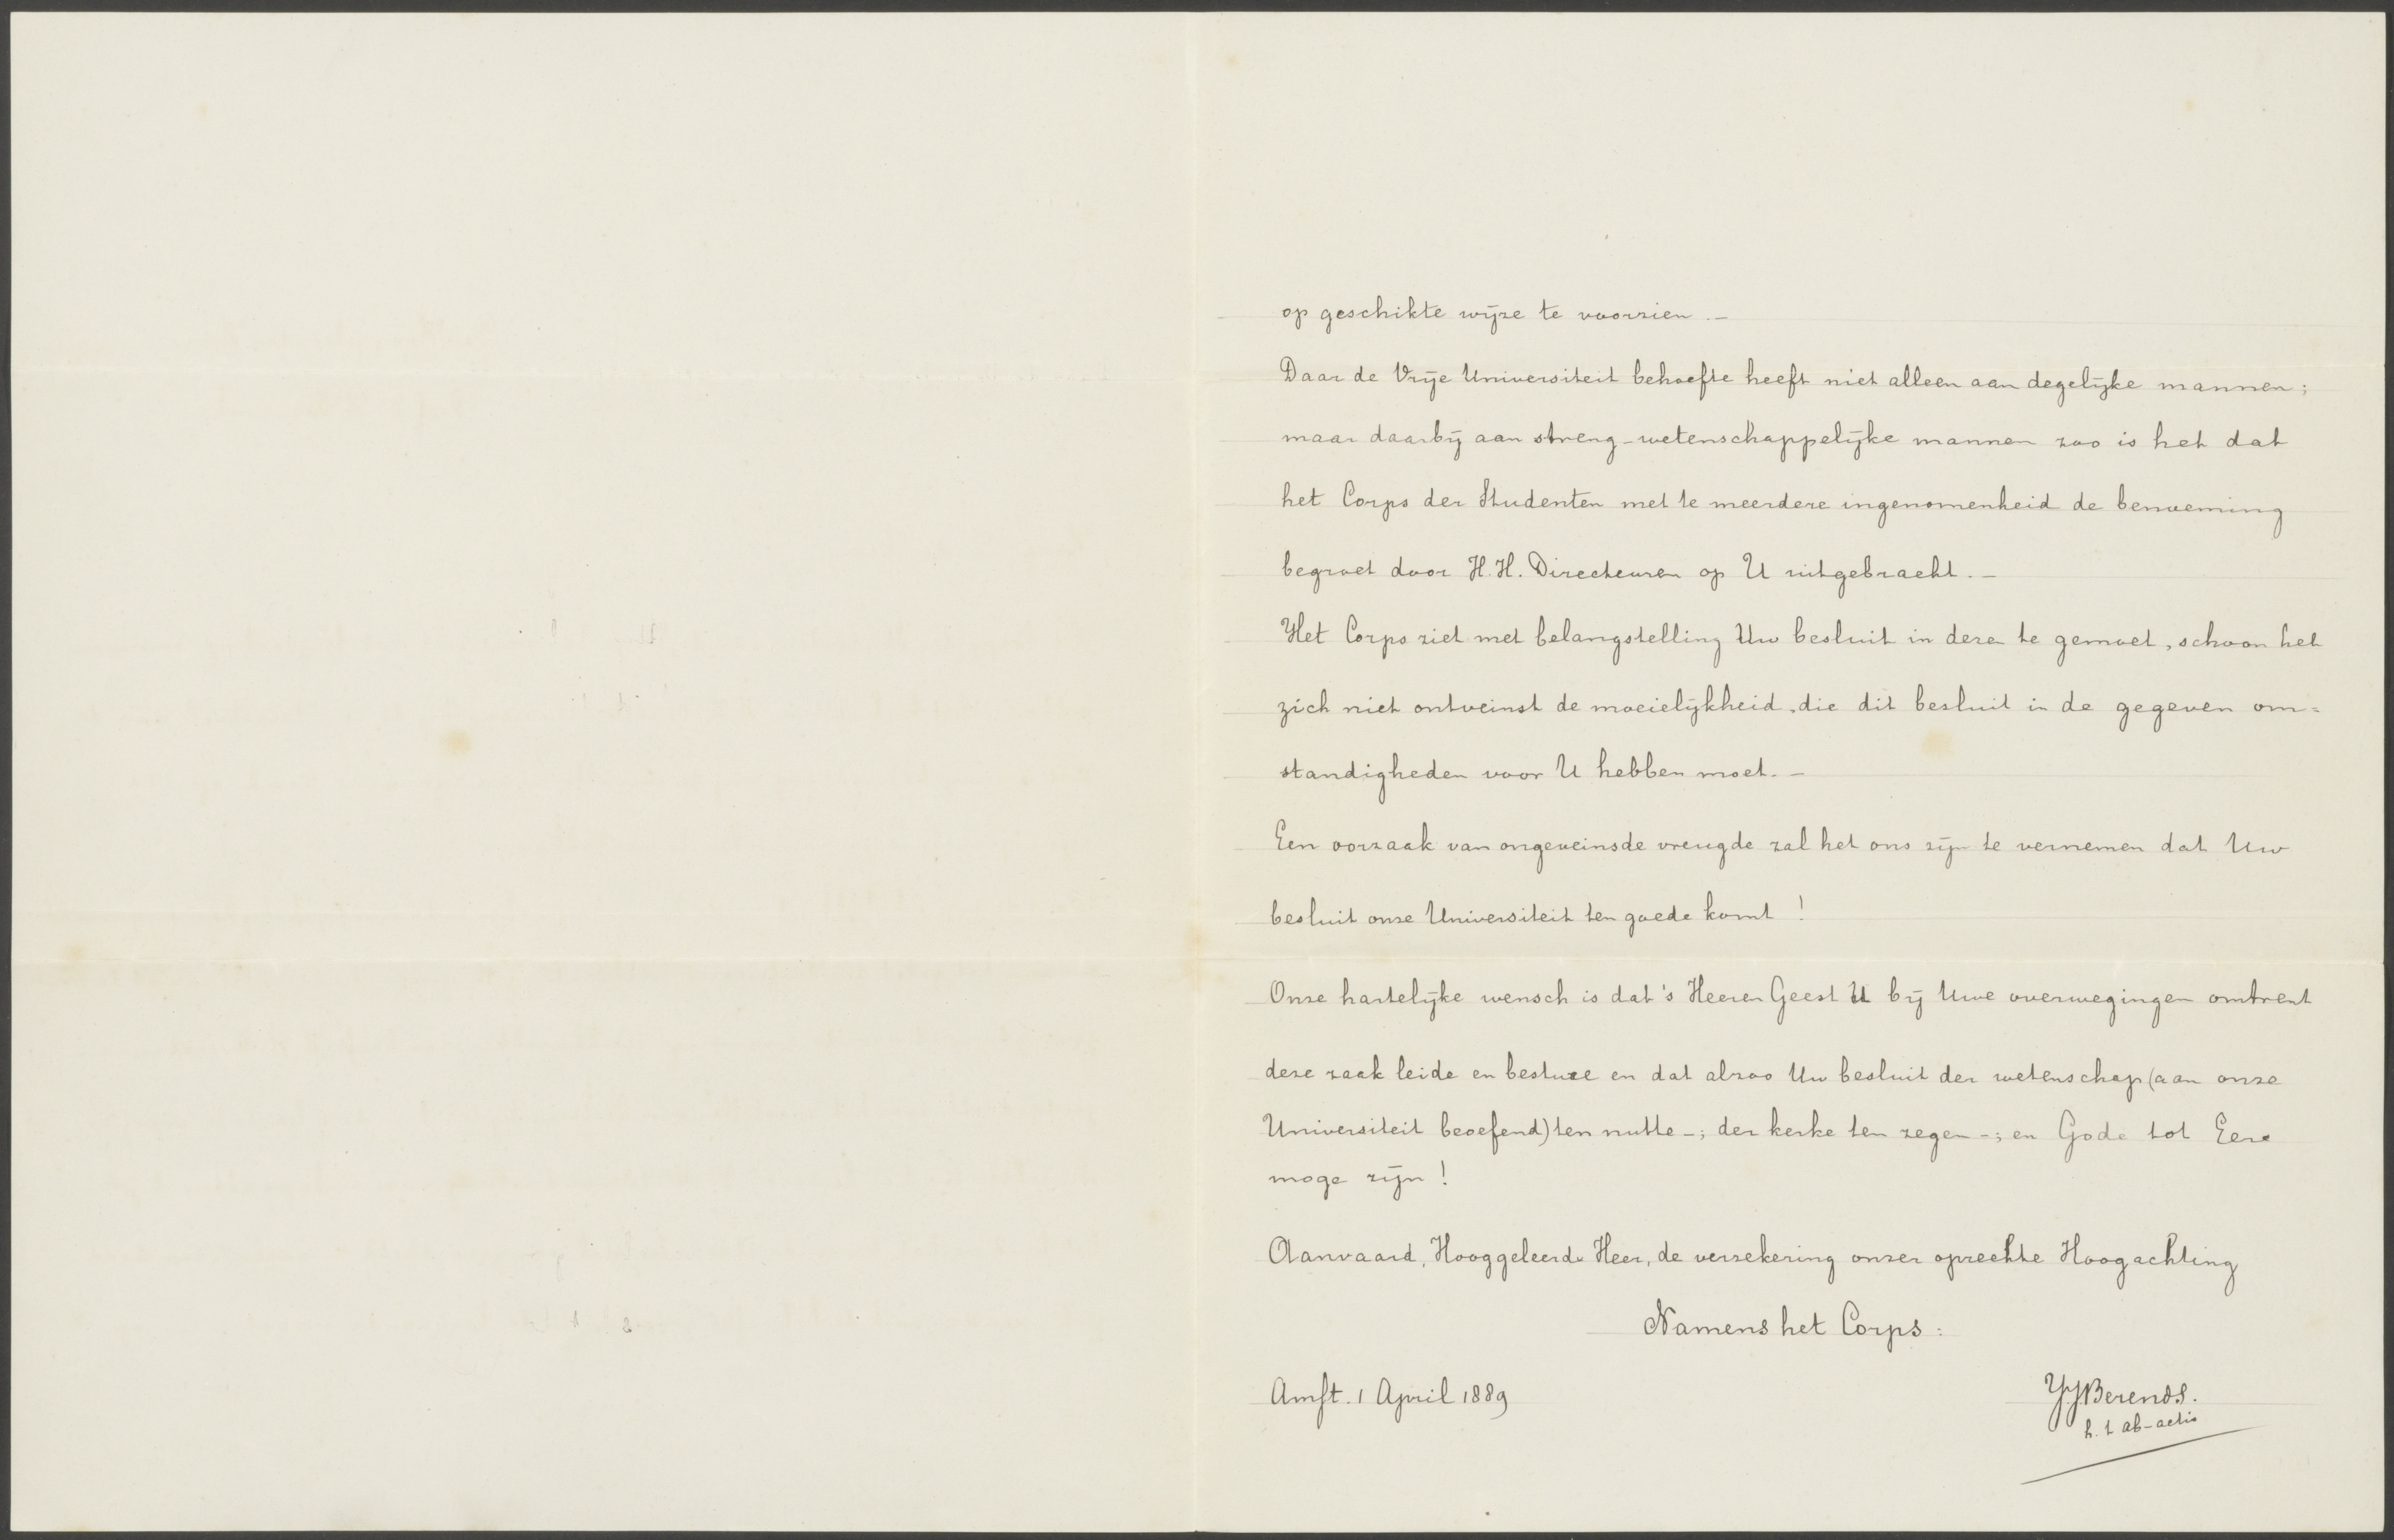 op geschikte wijze te voorzien. –
Daar de Vrije Universiteit behoefte heeft niet alleen aan degelijke mannen;
maar daarbij aan streng-wetenschappelijke mannen zoo is het dat
het Corps der Studenten met te meerdere ingenomenheid de benoeming
begroet door H.H. Directeuren op U uitgebracht. –
Het Corps ziet met belangstelling Uw besluit in deze te gemoet, schoon het
zich niet ontveinst de moeielijkheid, die dit besluit in de gegeven om=
standigheden voor U hebben moet. –
Een oorzaak van ongeveinsde vreugde zal het ons zijn te vernemen dat Uw
besluit onze Universiteit ten goede komt !
Onze hartelijke wensch is dat 's Heeren Geest U bij Uwe overwegingen omtrent
deze zaak leide en besture en dat alzoo Uw besluit der wetenschap (aan onze
Universiteit beoefend) ten nutte -; der kerke ten zegen -; en Gode tot Eere
moge zijn !
Aanvaard, Hooggeleerde Heer, de verzekering onzer oprechte Hoogachting
Namens het Corps :
Amst. 1 April 1889
J.J. Berends.
h. t. ab-actis